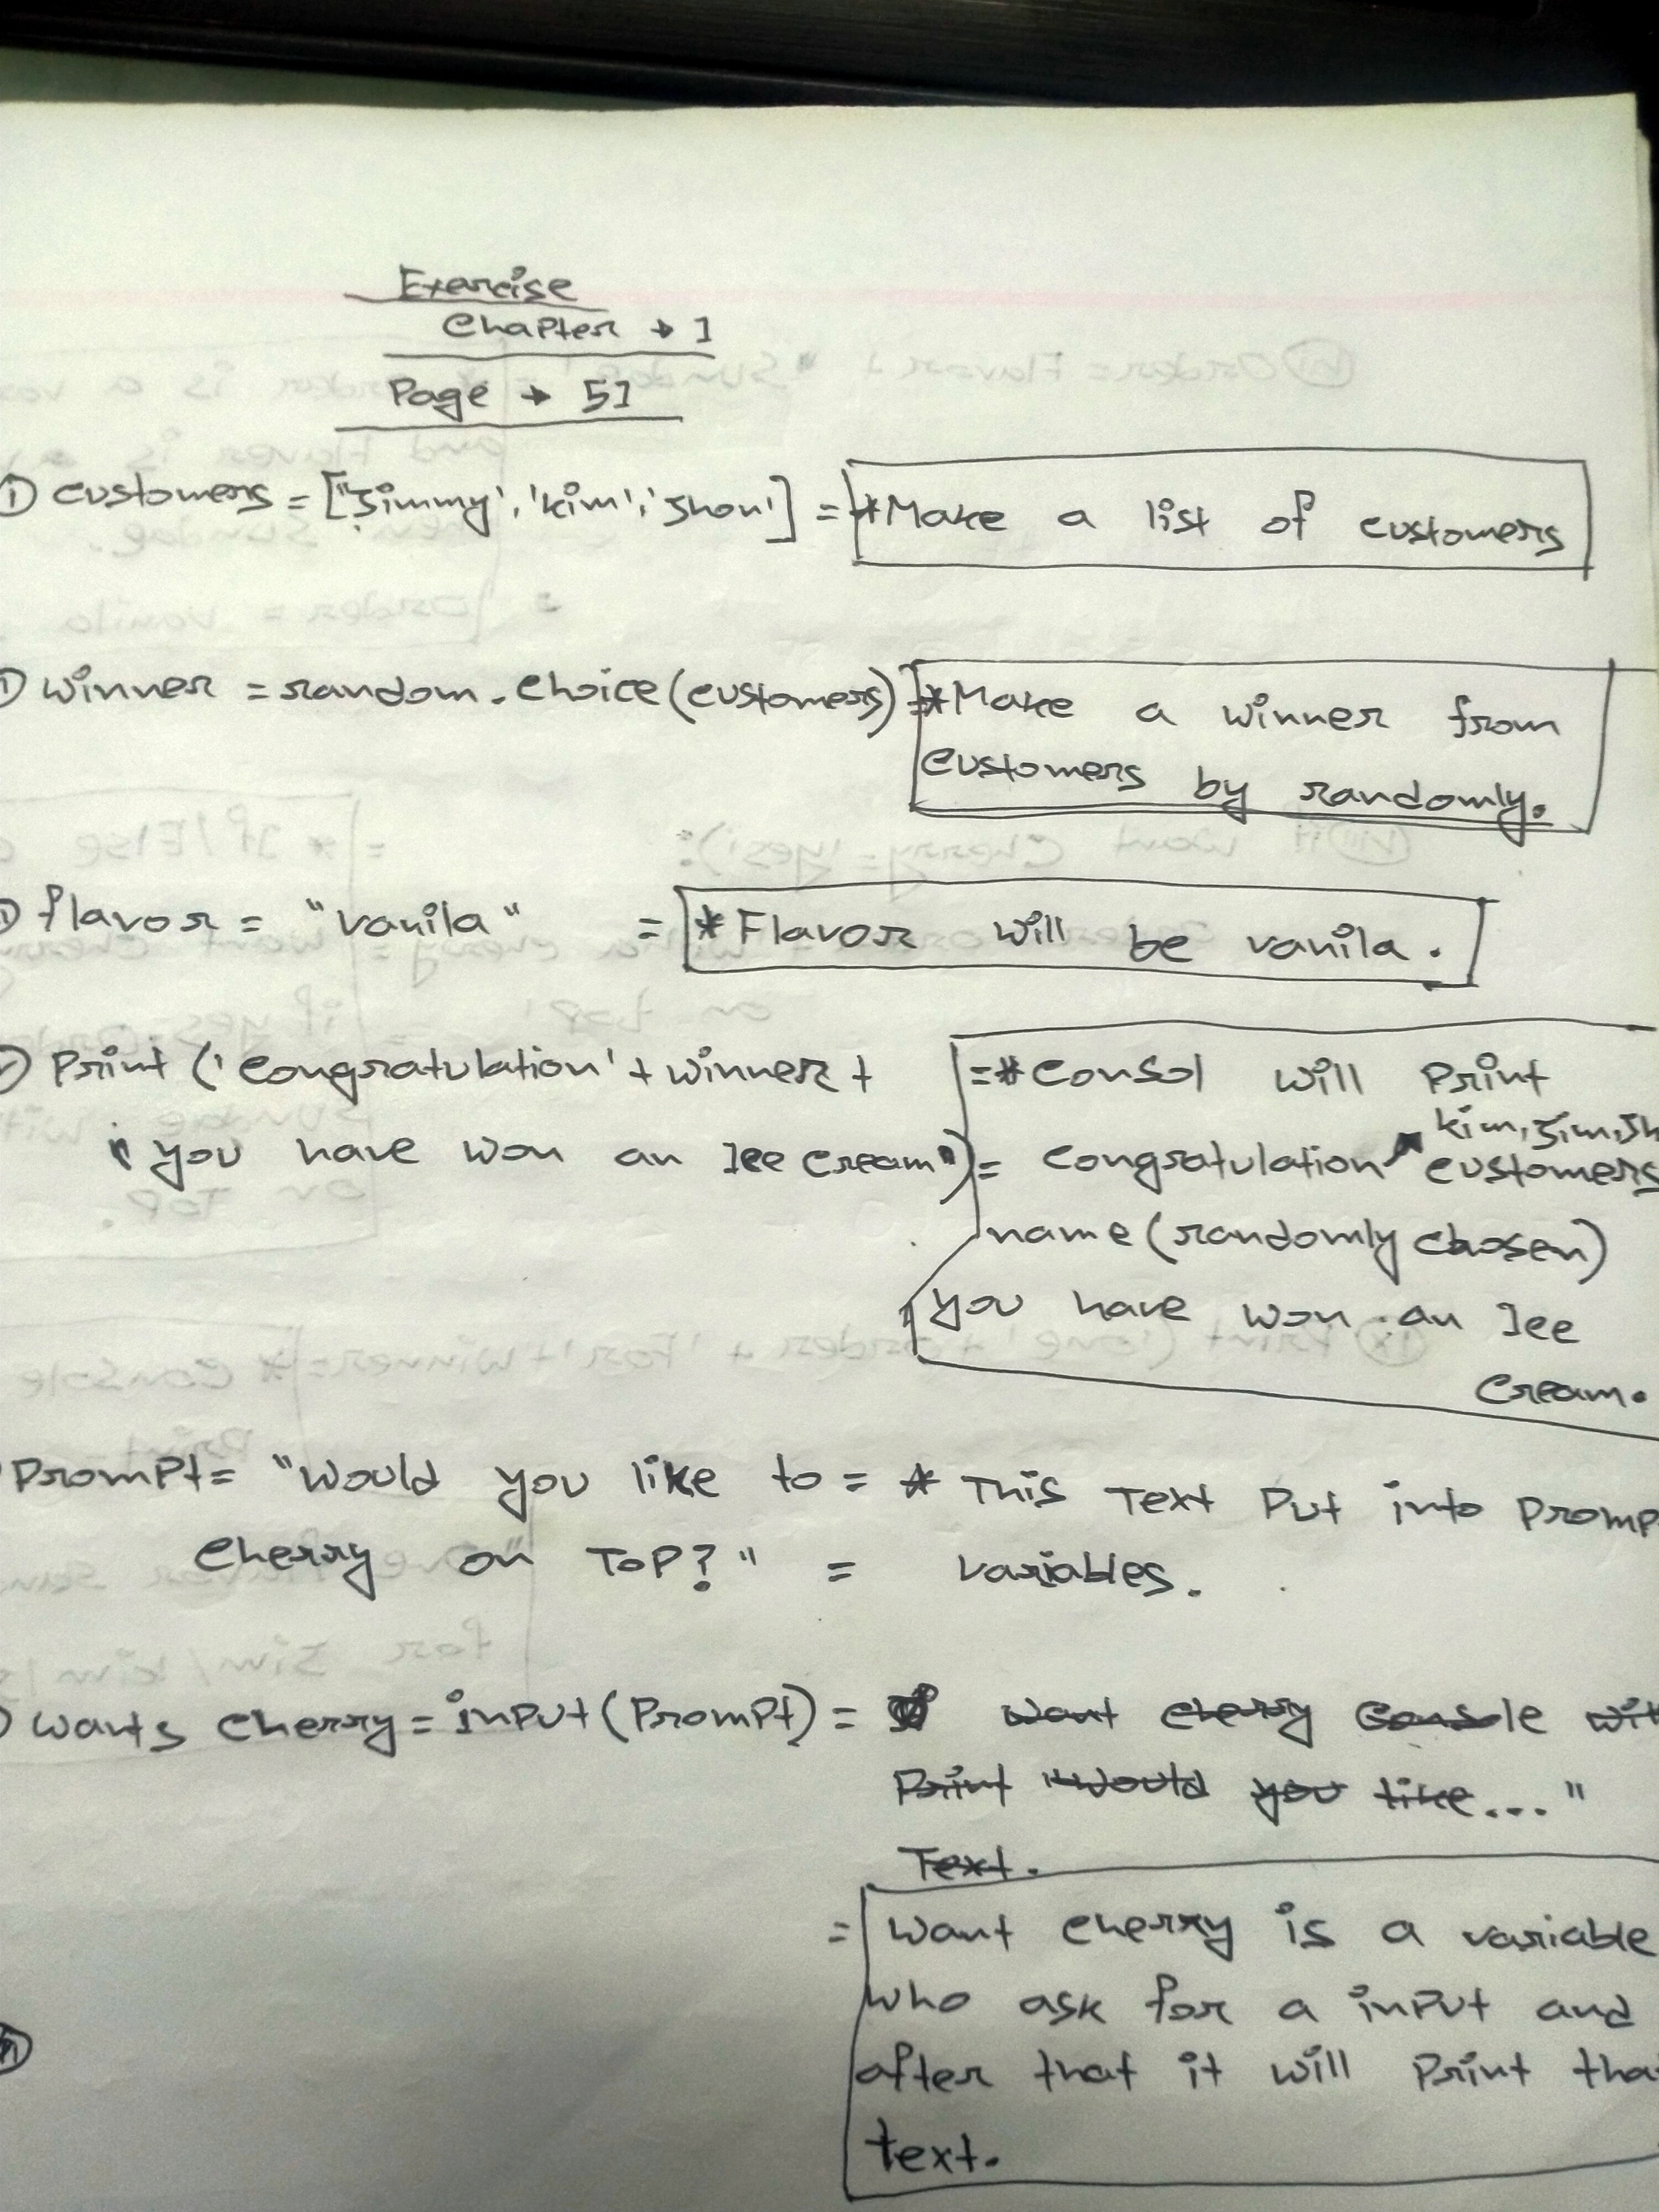 Exercise
Chapter → 1
Page → 51
① customers = ["Jimmy', 'kim', 'Jhon'] = *Make a list of customers
winner = random.choice(customers) = *Make a winner from
customers by randomly.
flavor = "vanila" = *Flavor will be vanila.
Print ('congratulation' + winner + = *Consol will Print
kim, Jim, Jh
'you have won an Ice cream") = congratulation customers
name (randomly chosen)
you have won an Ice
Cream.
Prompt = "Would you like to = * This Text Put into Promp
Cherry on Top?" = variables.
wants cherry = input (Prompt) = want cherry Console wit
Print "Would you like...."
Text.
= Want cherry is a variable
who ask for a input and
after that it will Print tha
text.